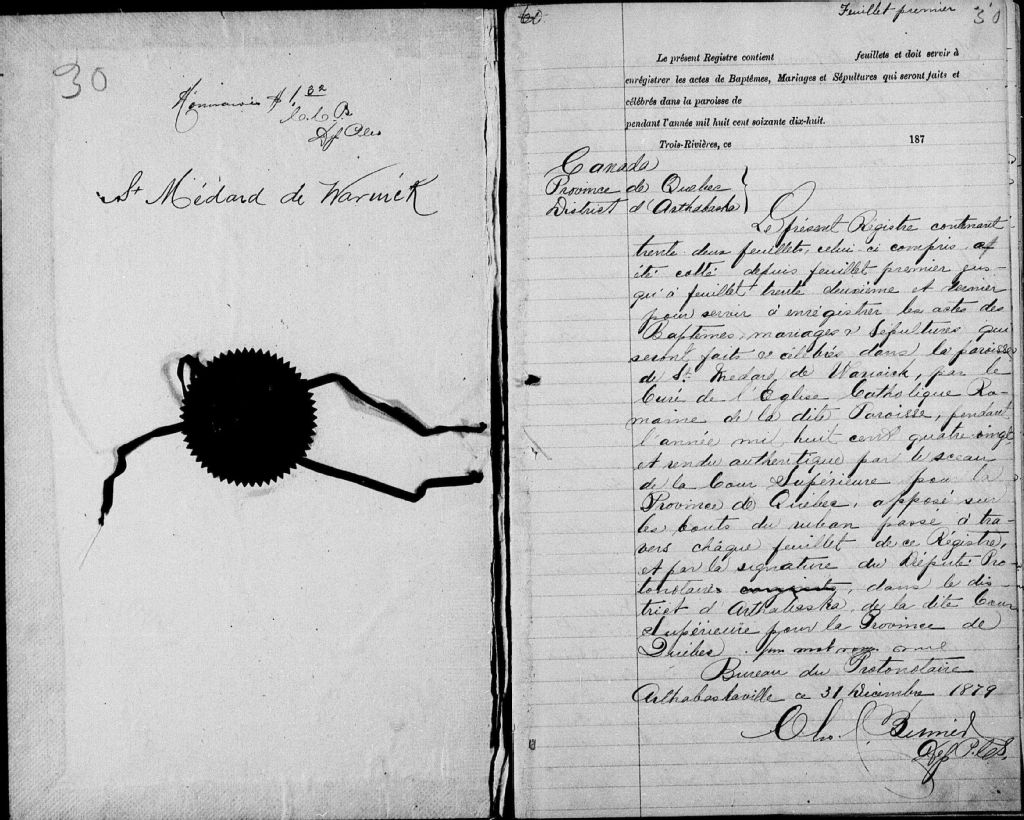 30
Honoraires $1.32
Dep
St Médard de Warwick
60
Feuillet premier 30
Le présent Registre contient feuillets et doit servir à
enrégistrer les actes de Baptêmes, Mariages et Sépultures qui seront faits et
célébrés dans la paroisse de
pendant l'année mil huit cent soixante dix-huit.
Trois-Rivières, ce 187
Canada
Province de Quebec
District d'Arthabaska
Le présent Registre contenant
trente deux feuillets, celui-ci compris, a
été cotté depuis feuillet premier jus-
qu'à feuillet trente deuxième et dernier
pour servir à enrégistrer les actes des
Baptêmes, mariages & Sépultures qui
seront faits & célébrés dans la paroisse
de St. Medard de Warwick, par le
Curé de l'Eglise Catholique Ro-
maine de la dite Paroisse, pendant
l'année mil huit cent quatre vingt
et rendu authentique par le sceau
de la Cour Supérieure pour la
Province de Québec, apposé sur
les bouts du ruban passé à tra-
vers châque feuillet de ce Registre,
et par la signature du Député Pro-
tonotaire, dans le dis-
trict d'Arthabaska, de la dite Cour
Supérieure pour la Province de
Québec. un mot rayé nul
Bureau du Protonotaire
Arthabaskaville ce 31 Décembre 1879
Chs. Bernier
Dep P.C.S.